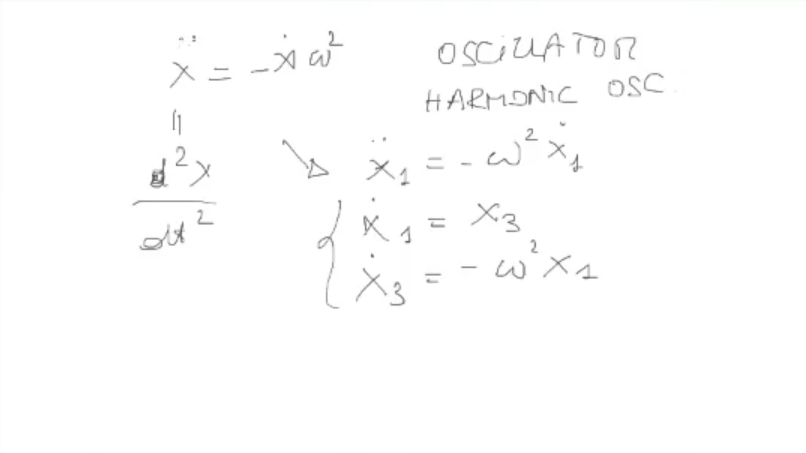 ẍ = -ẋ ω² OSCILLATOR
HARMONIC OSC.
||
d²x
dt²
ẍ₁ = - ω² ẋ₁
ẋ₁ = x₃
ẋ₃ = - ω² x₁